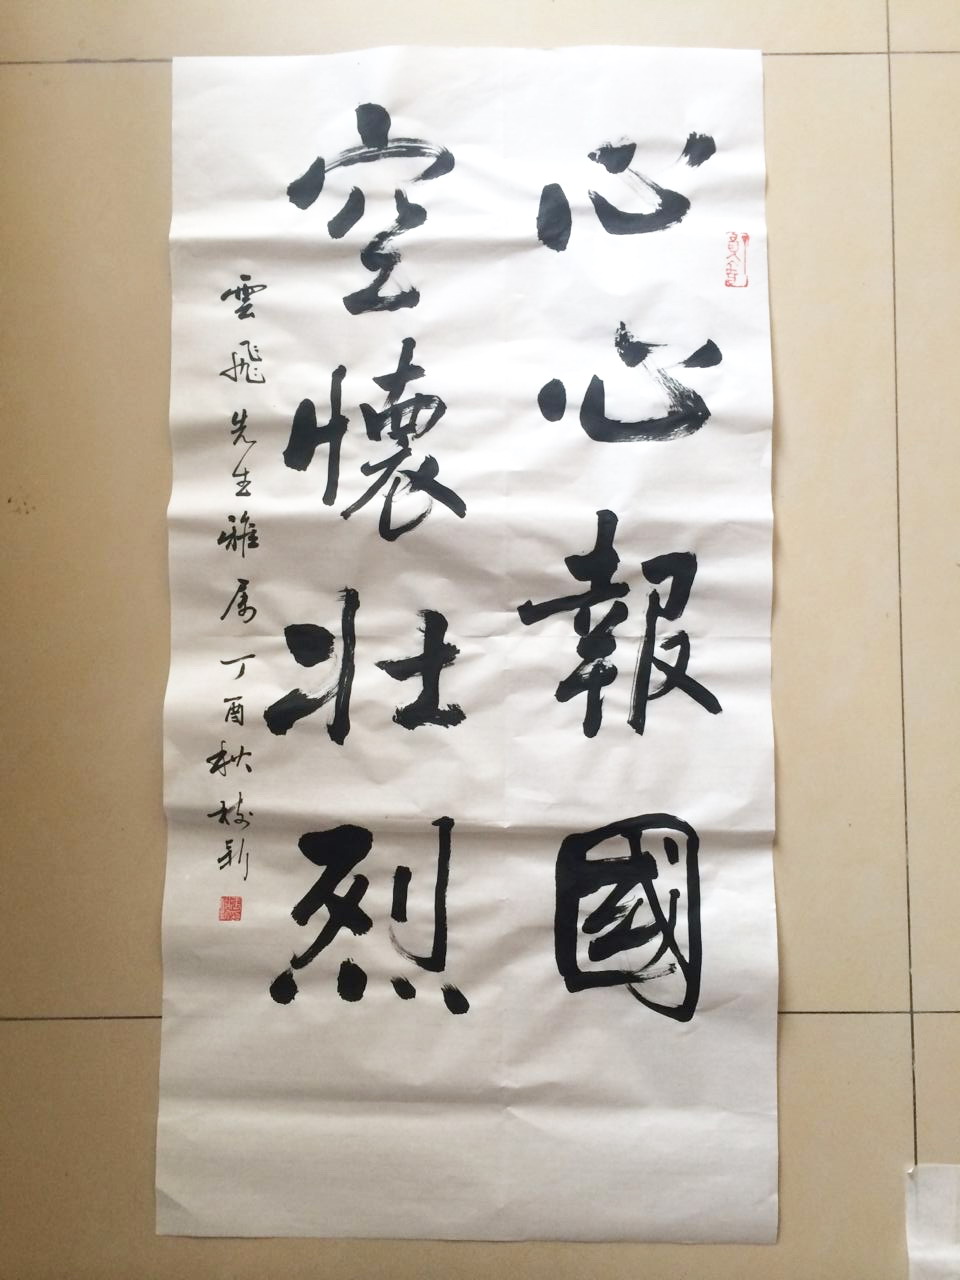 心心報國
空懷壯烈
雲飛先生雅属丁酉秋枝新